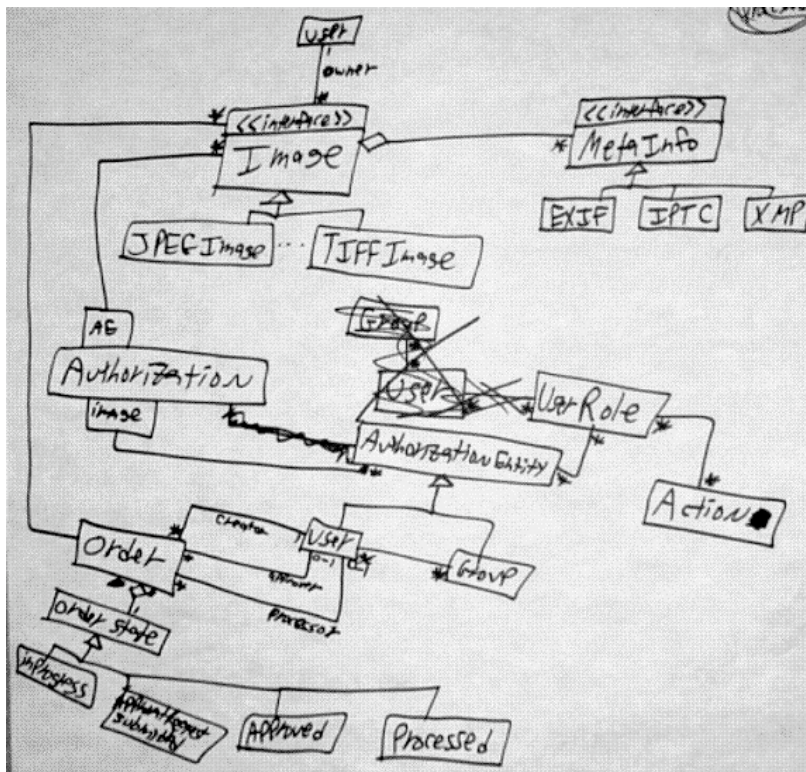 User
1
owner
*
<<interface>>
Image
*
*
*
<<interface>>
MetaInfo
EXIF
IPTC
XMP
JPEGImage
...
TIFFImage
AE
Authorization
image
Group
User
UserRole
*
*
*
*
AuthorizationEntity
*
*
Action
Order
*
creator
User
*
0-1
*
Processor
*
Group
1
Order State
inProgress
Approved
Processed